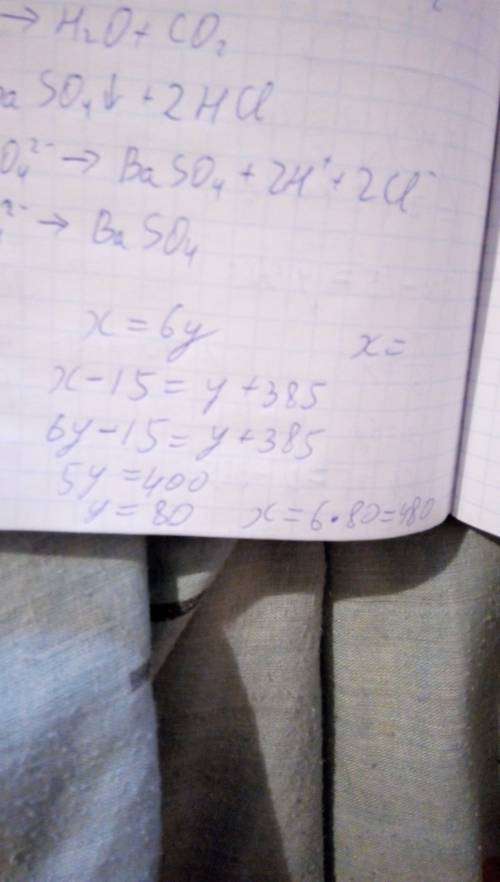 → H₂O + CO₂
SO₄↓ + 2HCl
O₄²⁻ → BaSO₄ + 2H⁺ + 2Cl⁻
²⁻ → BaSO₄
x = 6y x =
x - 15 = y + 385
6y - 15 = y + 385
5y = 400
y = 80 x = 6 • 80 = 480